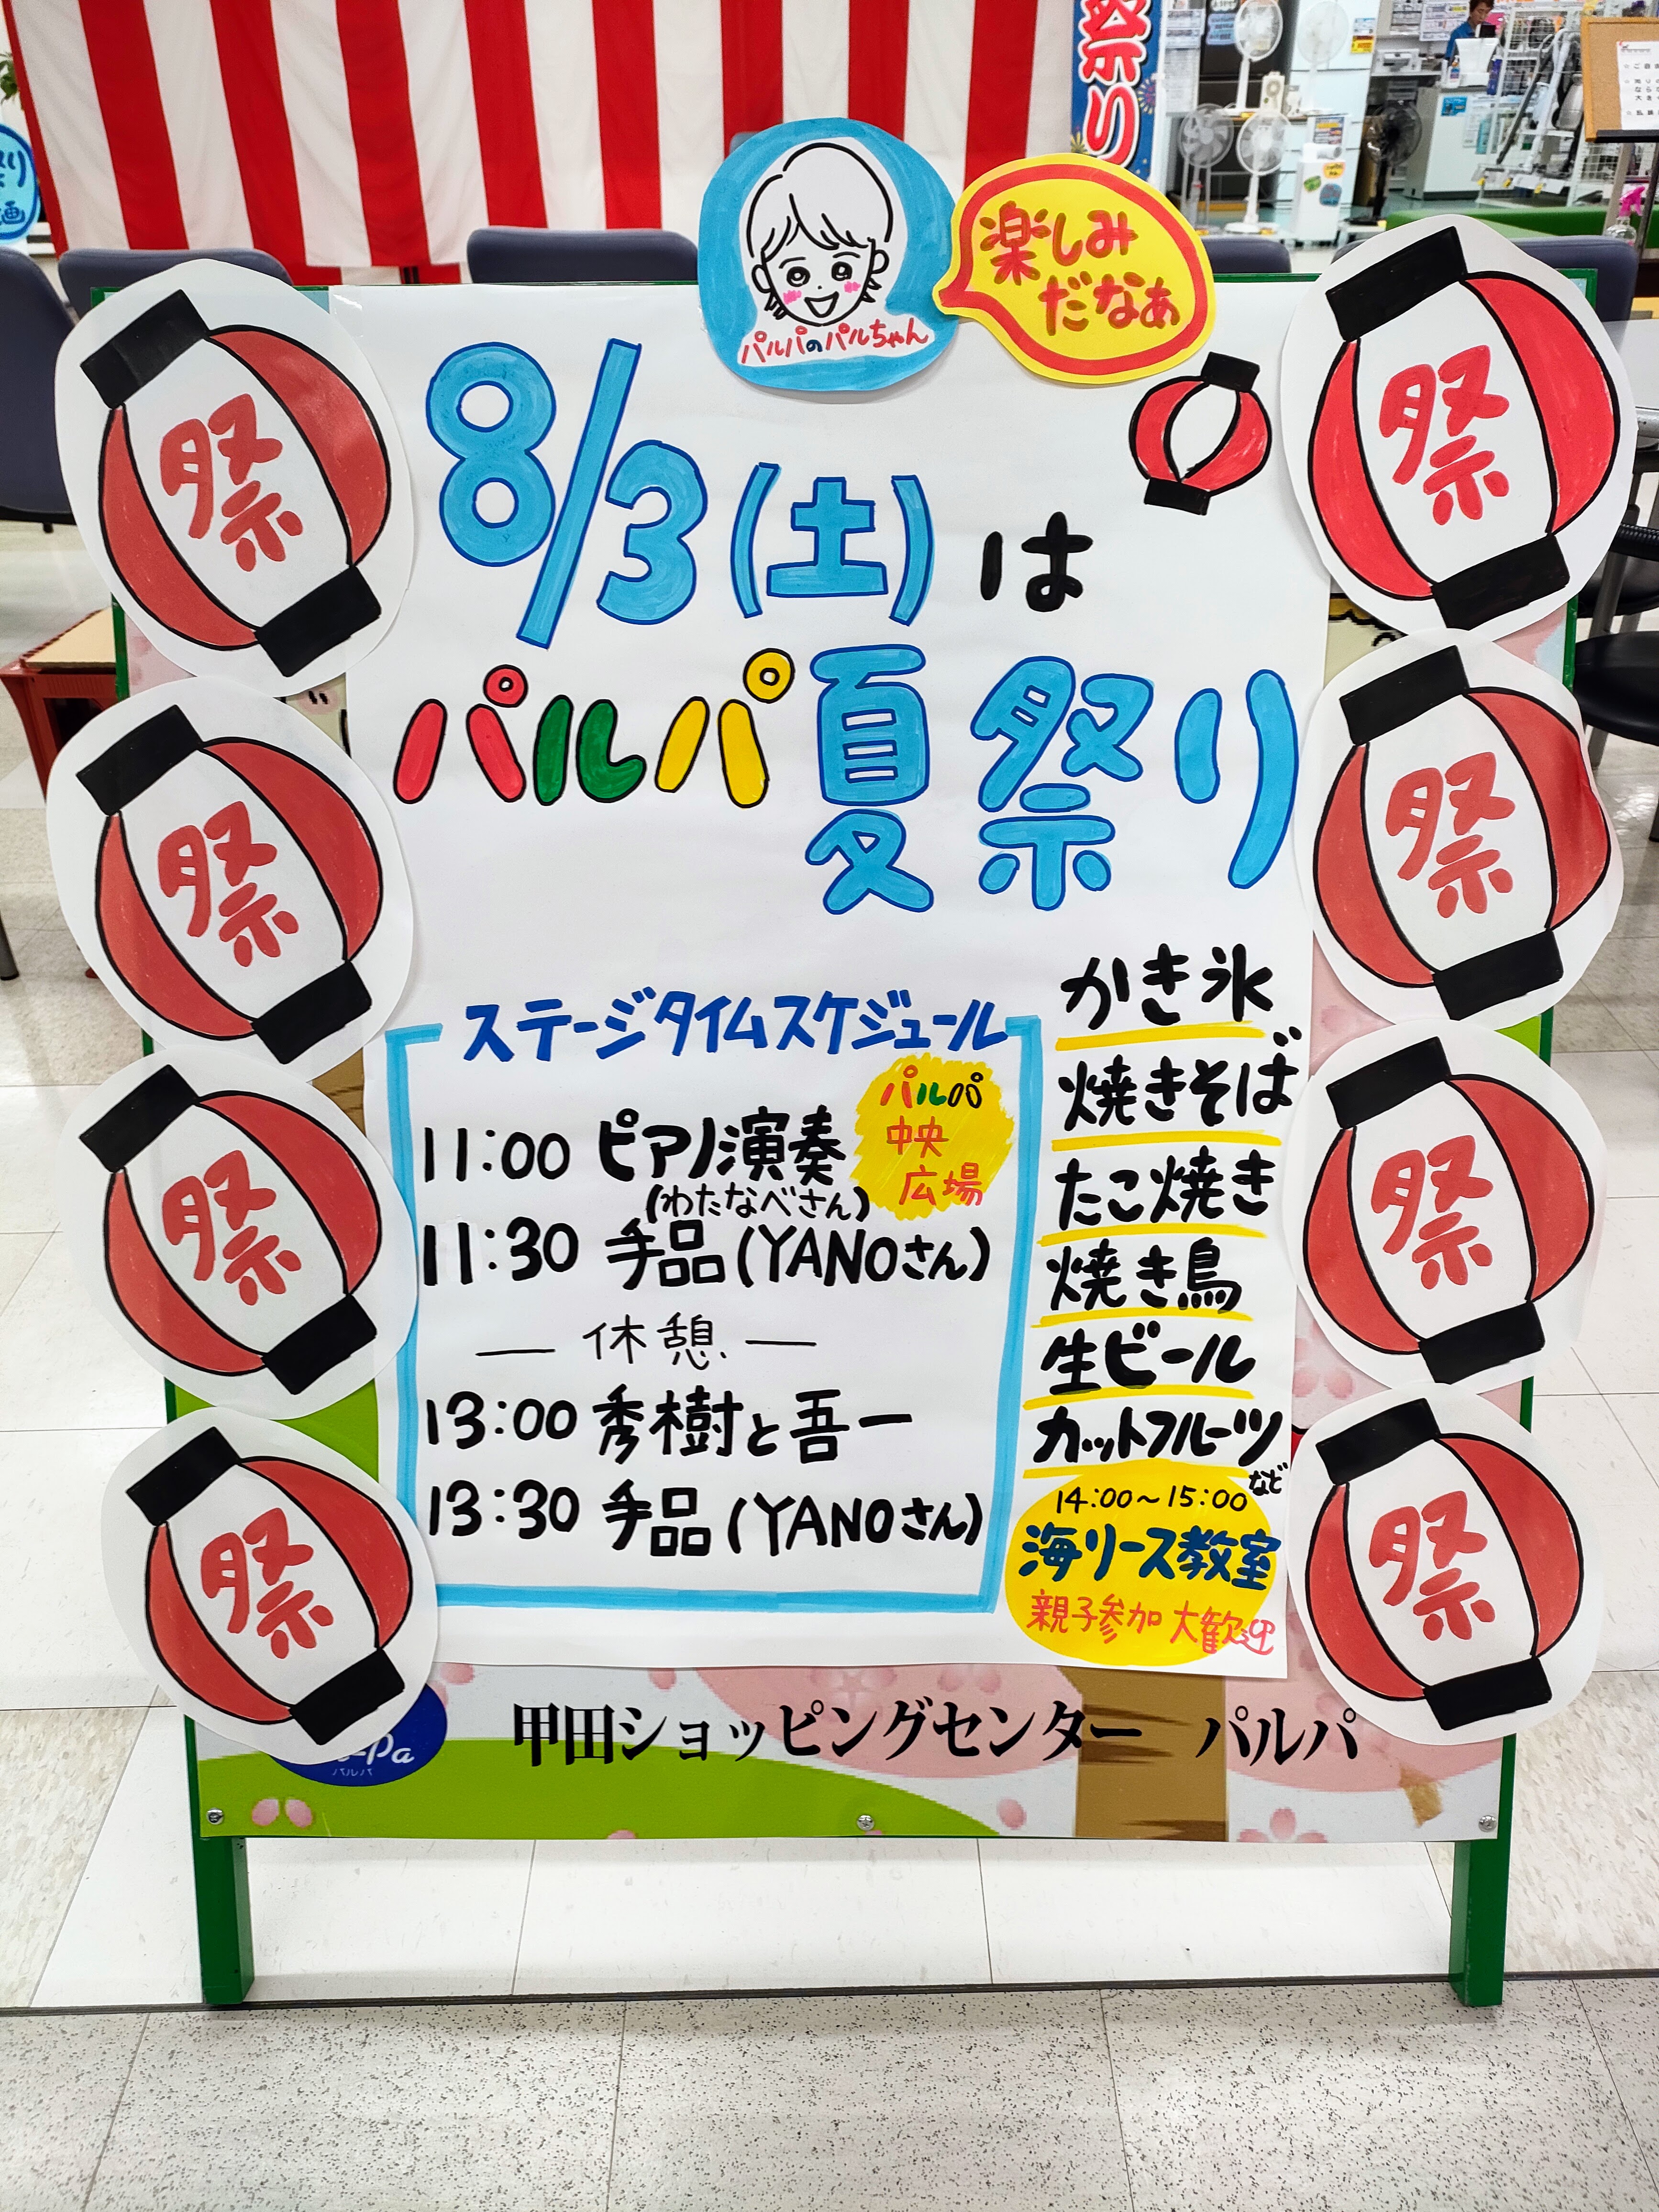 祭り
楽しみ
だなぁ
パルパのパルちゃん
8/3(土)は
パルパ夏祭り
ステージタイムスケジュール
パルパ
中央
広場
11:00 ピアノ演奏
(わたなべさん)
11:30 手品(YANOさん)
― 休憩 ―
13:00 秀樹と吾一
13:30 手品(YANOさん)
かき氷
焼きそば
たこ焼き
焼き鳥
生ビール
カットフルーツ
など
14:00～15:00
海リース教室
親子参加 大歓迎
祭
祭
祭
祭
祭
祭
祭
祭
パルパ
甲田ショッピングセンター パルパ